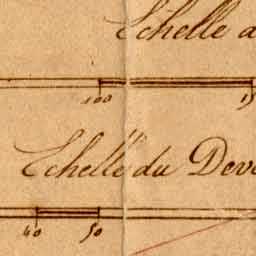 Echelle d
100 15
Echelle du Deve
40 50